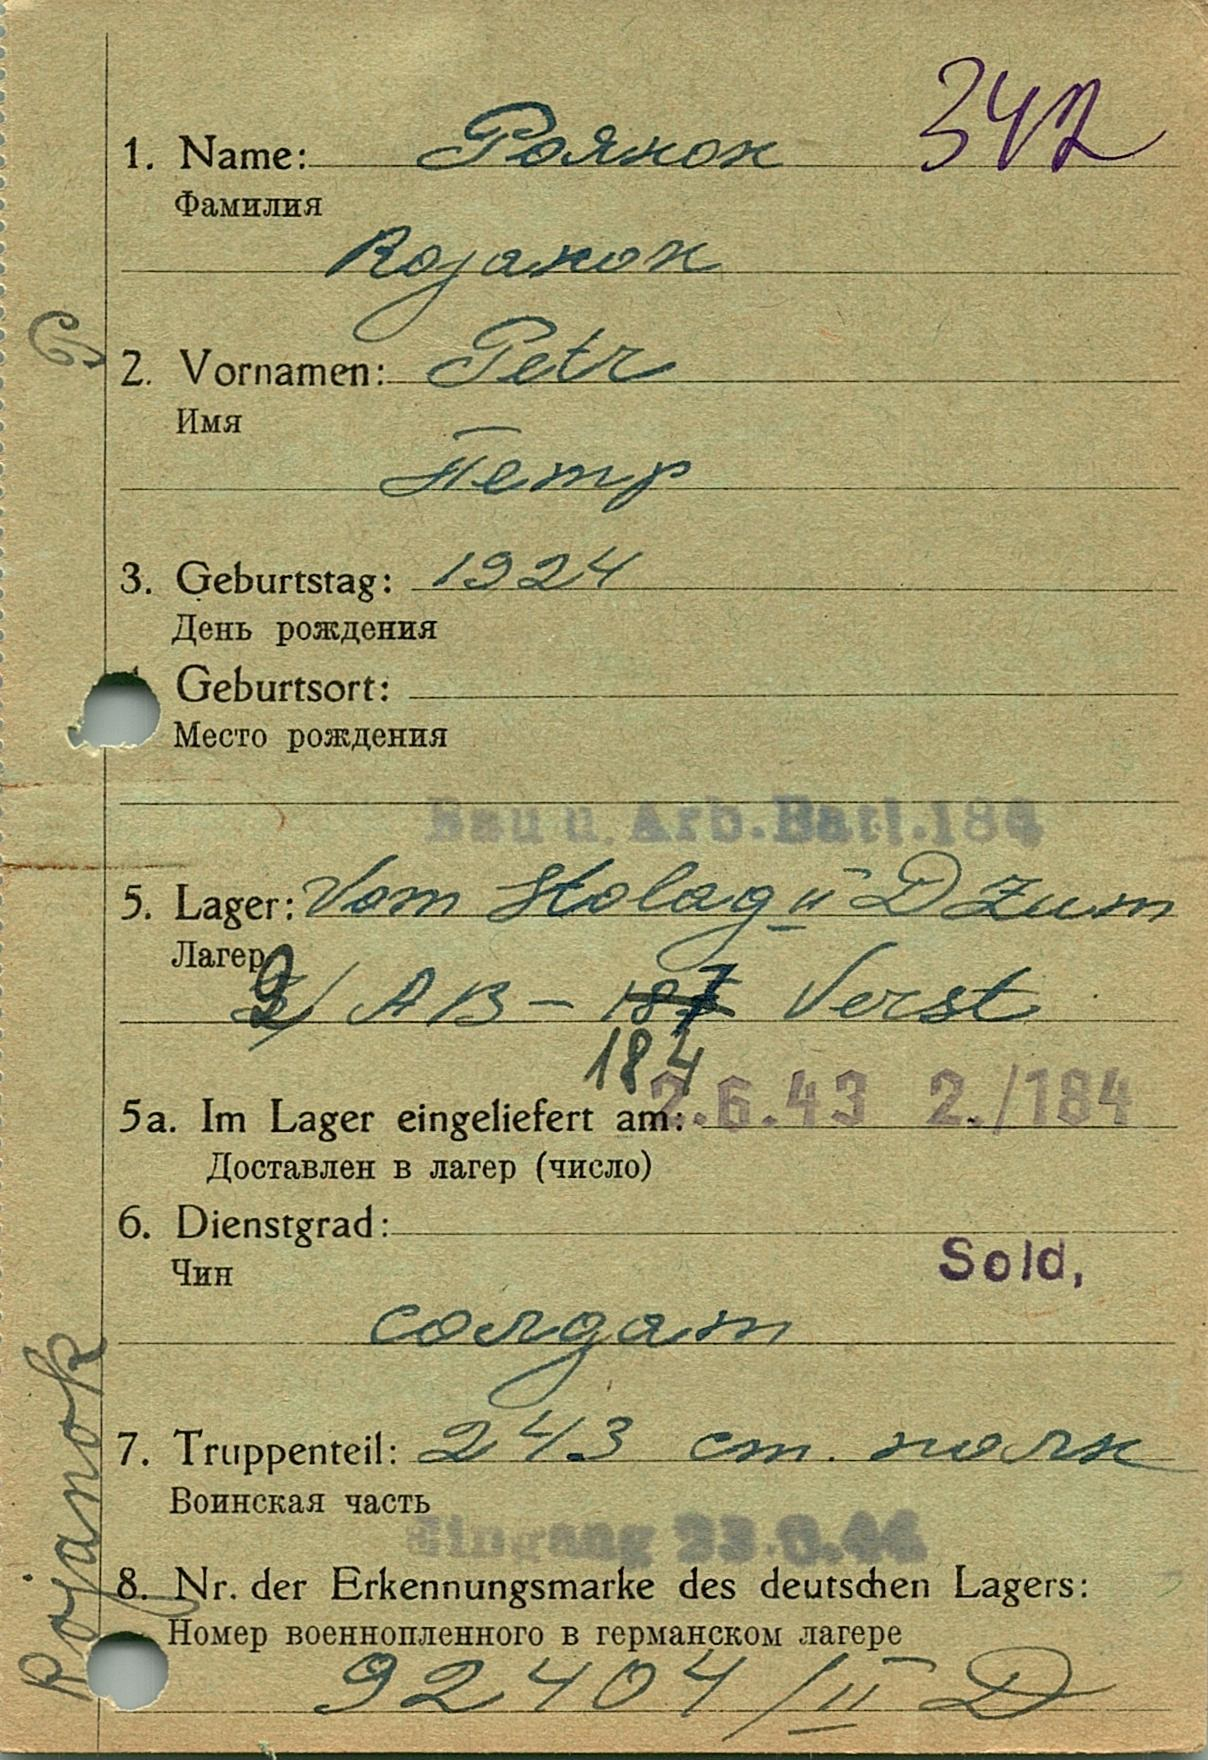 342
1. Name: Роянок
Фамилия
Rojanok
P
2. Vornamen: Petr
Имя
Петр
3. Geburtstag: 1924
День рождения
Geburtsort:
Место рождения
Bau u. Arb. Batl. 184
5. Lager: Vom Stalag II D zum
Лагер
2/ AB - 187 Verst
184
2.6.43 2./184
5a. Im Lager eingeliefert am:
Доставлен в лагер (число)
6. Dienstgrad:
Чин
Sold,
солдат
7. Truppenteil: 243 ст. полк
Воинская часть
Eingang
8. Nr. der Erkennungsmarke des deutschen Lagers:
Номер военнопленного в германском лагере
92404/II D
Rojanok